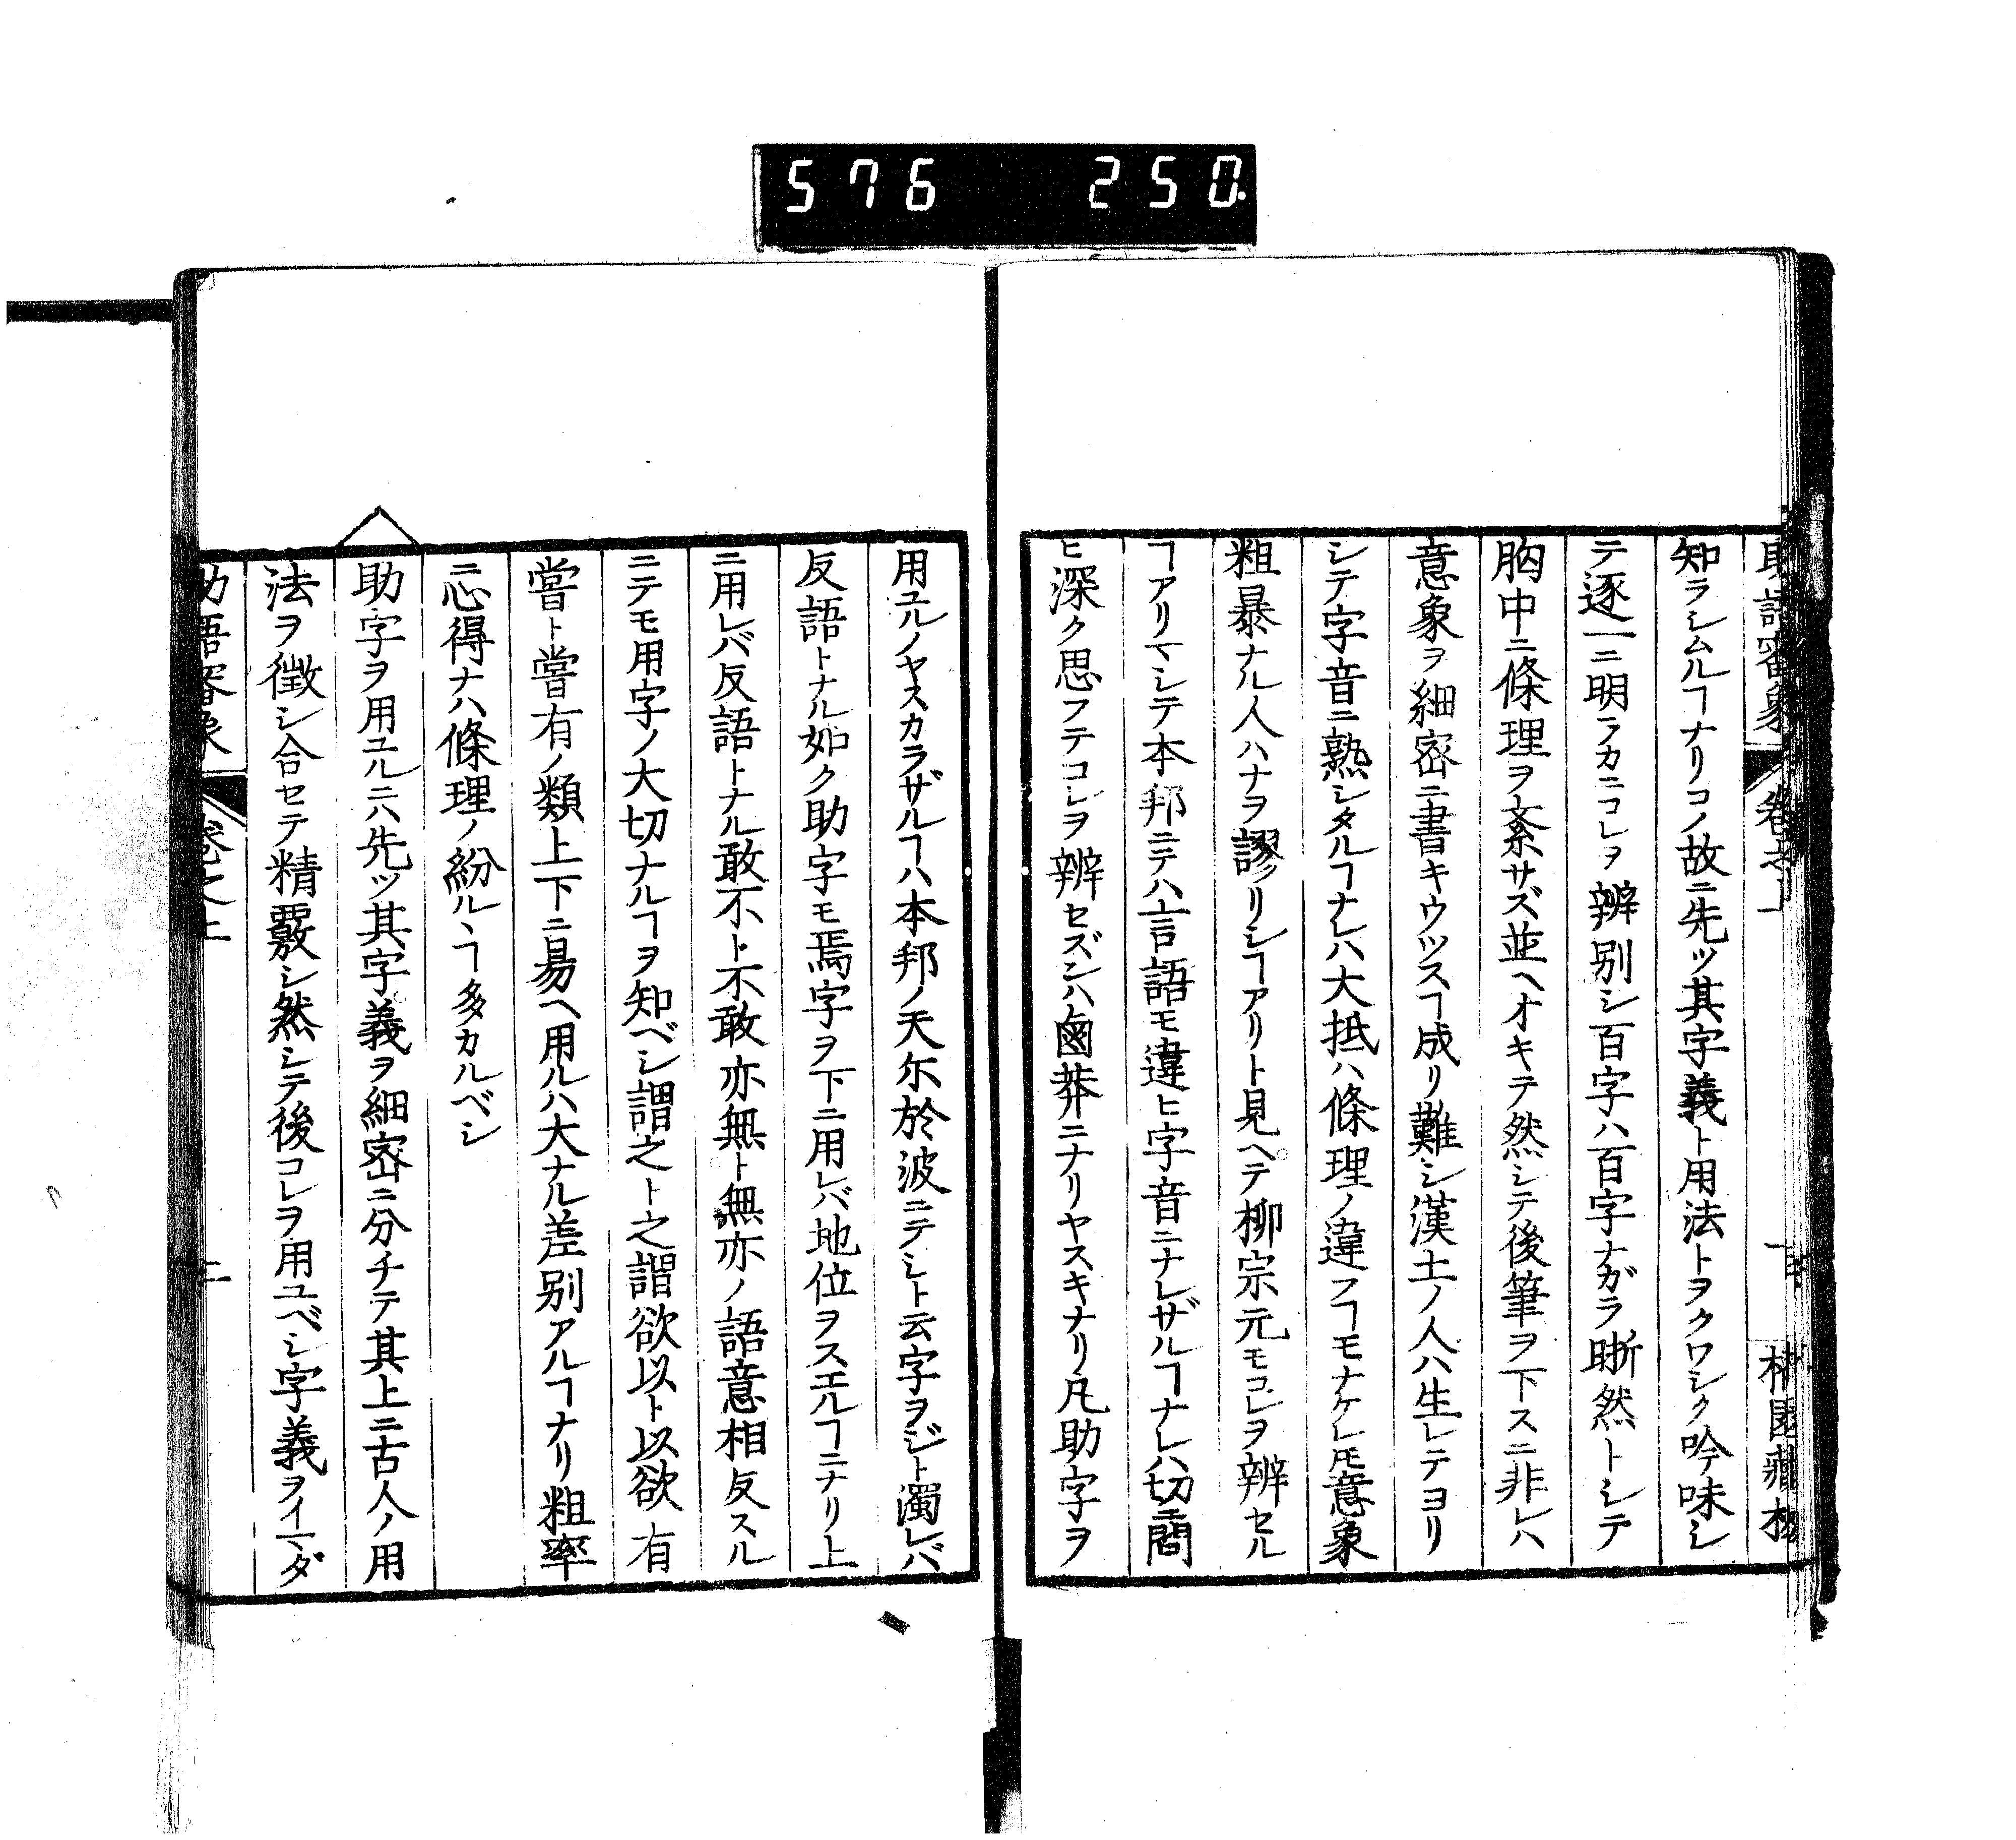 576 250
助語審象 卷之上 一
知ラシムルヿナリコノ故ニ先ツ其字義ト用法トヲクワシク吟味シ
テ逐一ニ明ラカニコレヲ辨别シ百字ハ百字ナガラ晣然トシテ
胸中ニ條理ヲ紊サズ並ヘオキテ然シテ後筆ヲ下スニ非レハ
意象ヲ細密ニ書キウツスヿ成リ難シ漢土ノ人ハ生レテヨリ
シテ字音ニ熟シタルヿナレハ大抵ハ條理ノ違フヿモナケレ𪜈意象
粗暴ナル人ハナヲ謬リシヿアリト見ヘテ柳宗元モコレヲ辨セル
ヿアリマシテ本邦ニテハ言語モ違ヒ字音ニナレザルヿナレハ切ニ問
ヒ深ク思フテコレヲ辨セズンハ鹵莽ニナリヤスキナリ凡助字ヲ
用ユルノヤスカラザルヿハ本邦ノ天尓於波ニテシト云字ヲジト濁レバ
反語トナル如ク助字モ焉字ヲ下ニ用レバ地位ヲスエルヿニナリ上
ニ用レバ反語トナル敢不ト不敢亦無ト無亦ノ語意相反スル
ニテモ用字ノ大切ナルヿヲ知ベシ謂之ト之謂欲以ト以欲有
嘗ト嘗有ノ類上下ニ易ヘ用ルハ大ナル差别アルヿナリ粗率
ニ心得ナハ條理ノ紛ルヽヿ多カルベシ
助字ヲ用ユルニハ先ツ其字義ヲ細密ニ分チテ其上ニ古人ノ用
法ヲ徴シ合セテ精覈シ然シテ後コレヲ用ユベシ字義ヲイマダ
助語審象 卷之上 二